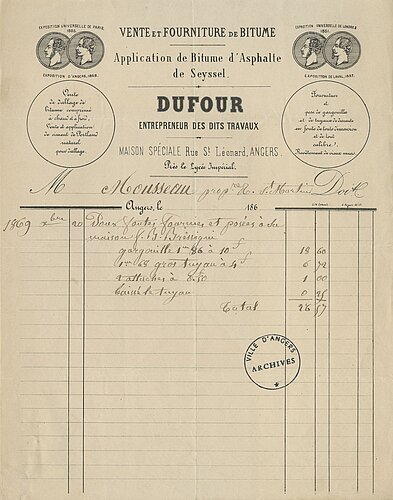 EXPOSITION UNIVERSELLE DE PARIS,
1855.
EXPOSITION D'ANGERS, 1858.
VENTE ET FOURNITURE DE BITUME
Application de Bitume d'Asphalte
de Seyssel.
DUFOUR
ENTREPRENEUR DES DITS TRAVAUX
MAISON SPÉCIALE Rue St Léonard, ANGERS.
Près le Lycée Impérial.
EXPOSITION UNIVERSELLE DE LONDRES
EXPOSITION DE LAVAL,
Vente
de dallage de
bitume comprimé
à chaud et à froid,
Vente et application
de ciment de Portland
naturel
pour dallage.
Fourniture et
pose de gargouilles
et de tuyaux de descente
en fonte de toute dimension
et de tout
calibre.
Rendement de vieux
M Mousseau propre R. St Martin Doit
Angers, le 186
1869 xbre 20 Pour fontes fournies et posées à sa
maison
gargouille 1m 86 à 10f 18 60
1m 68 gros tuyau à 4f 6 72
2 attaches à 0.50 1 00
le tuyau 0 25
Total 26 57
VILLE D'ANGERS
ARCHIVES